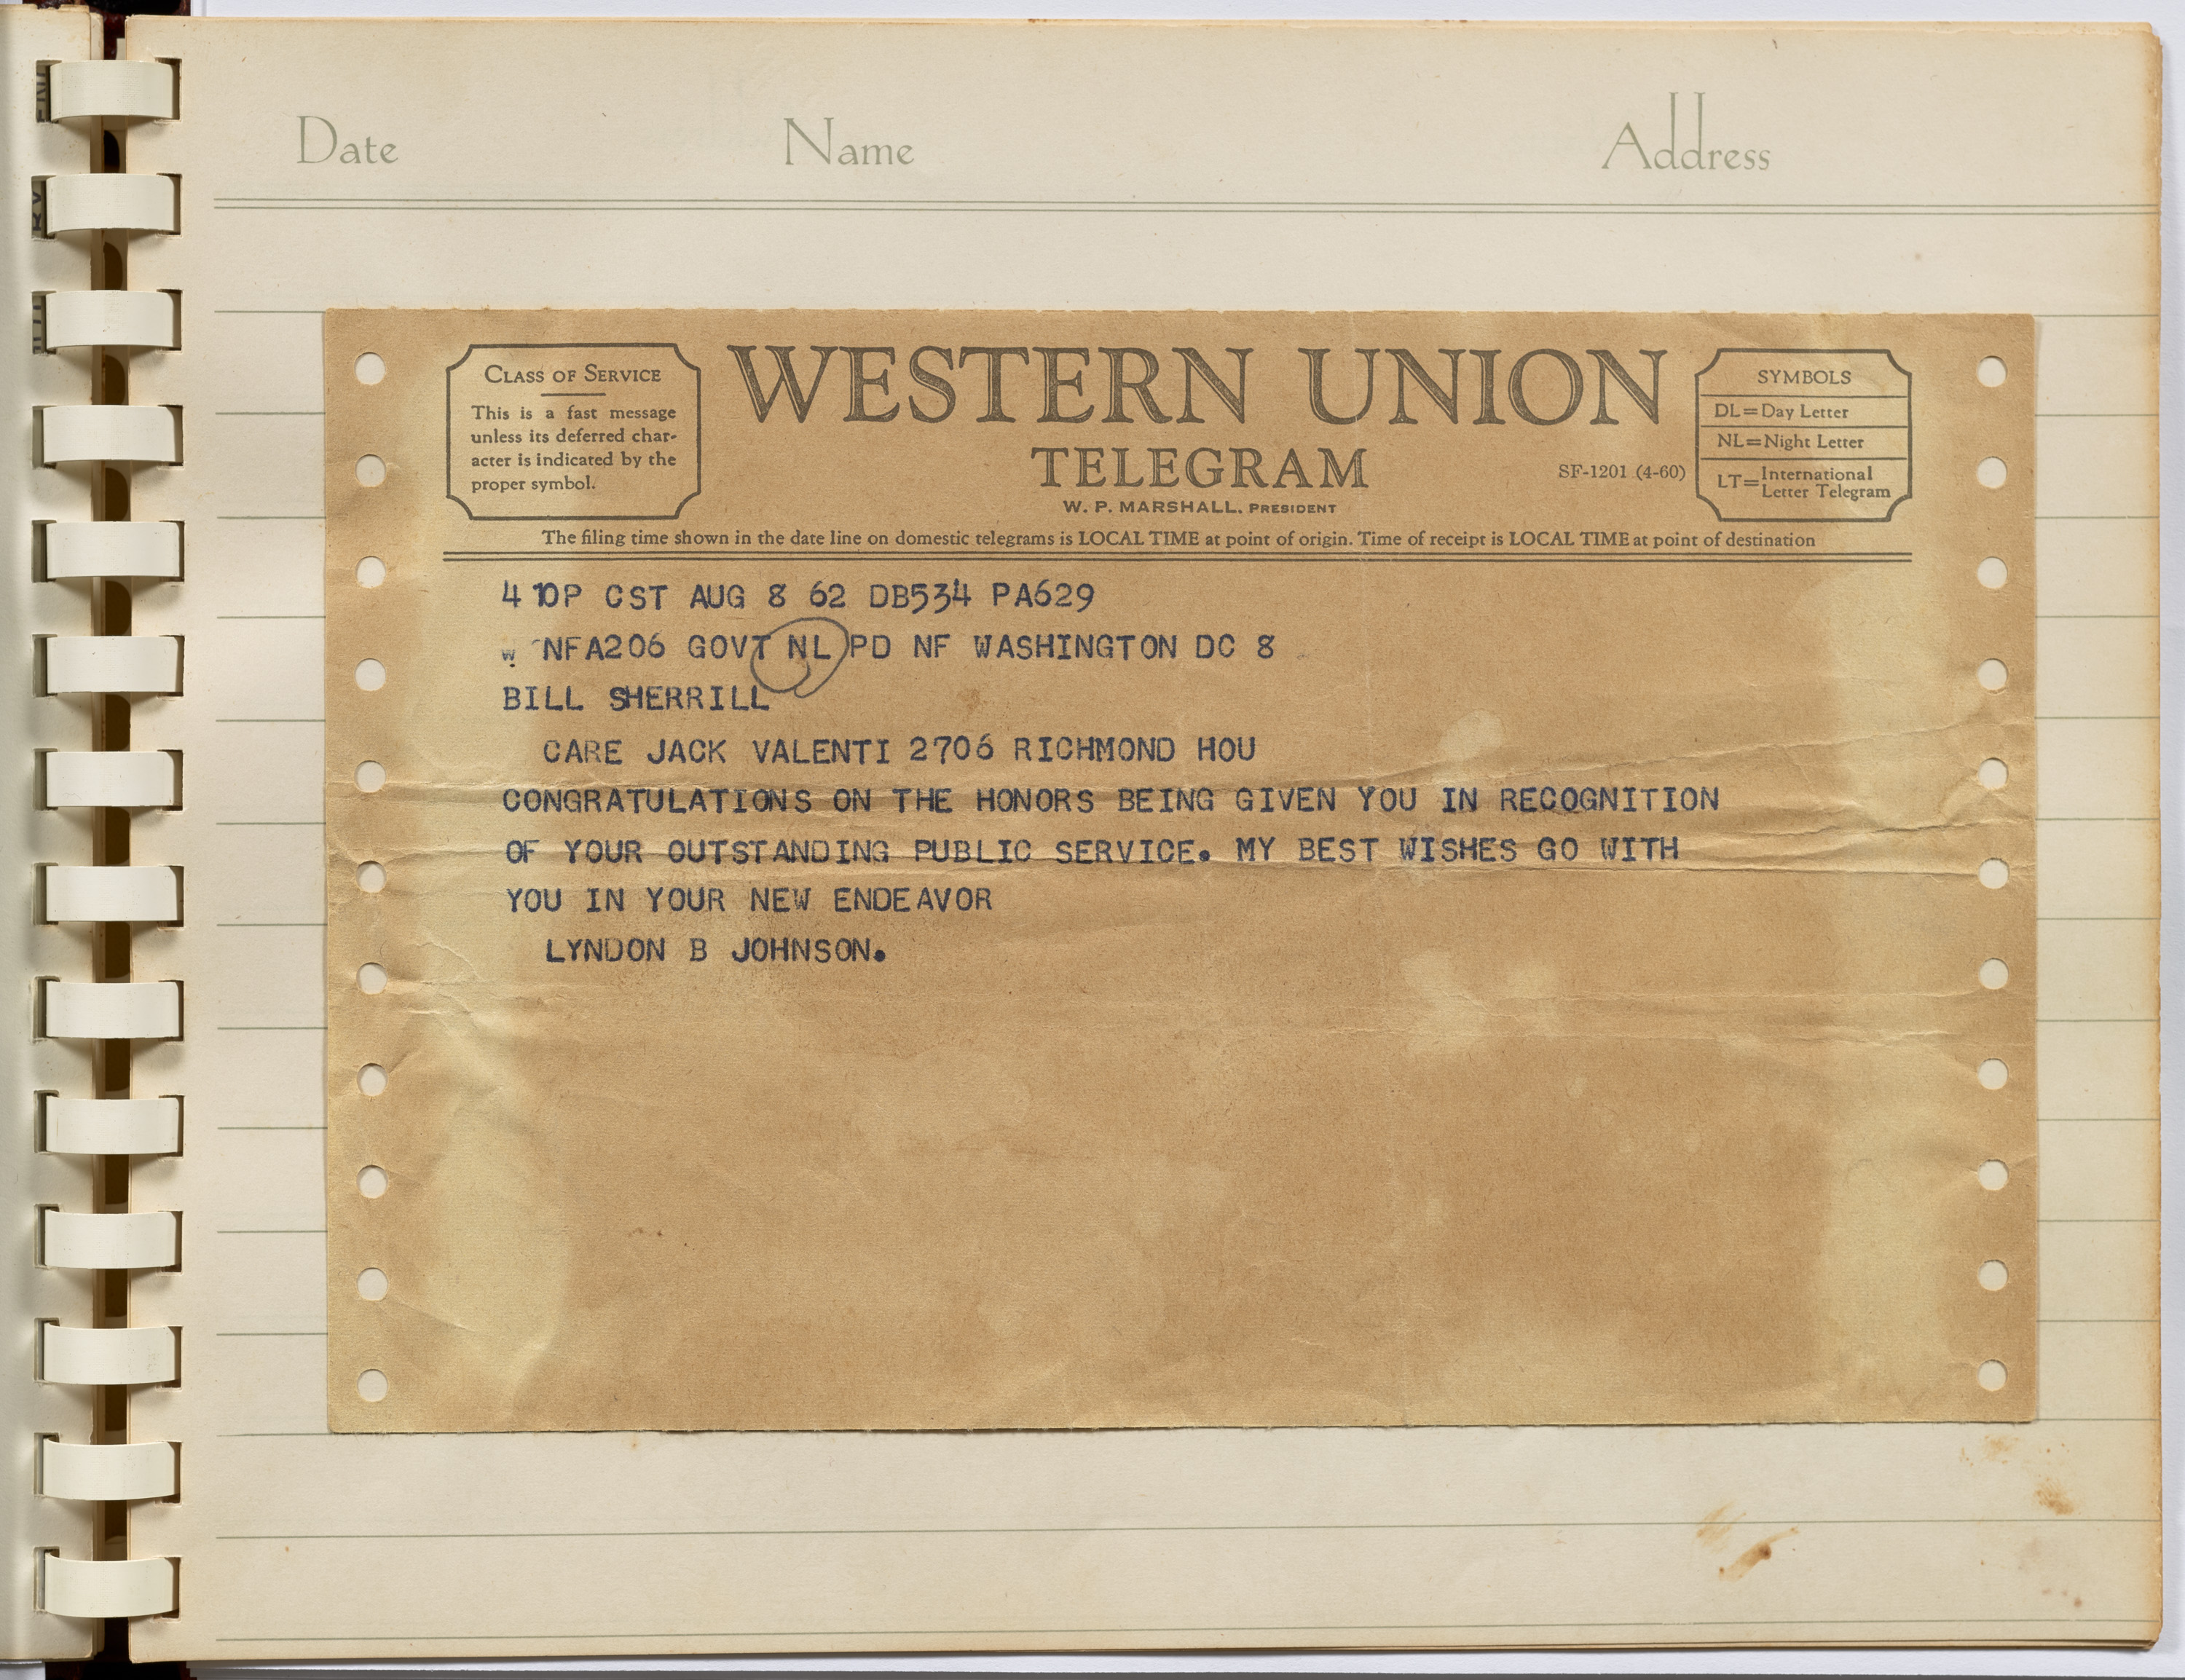 Date Name Address
CLASS OF SERVICE
This is a fast message
unless its deferred char-
acter is indicated by the
proper symbol.
WESTERN UNION
TELEGRAM
W. P. MARSHALL, PRESIDENT
SF-1201 (4-60)
SYMBOLS
DL=Day Letter
NL=Night Letter
LT=International
Letter Telegram
The filing time shown in the date line on domestic telegrams is LOCAL TIME at point of origin. Time of receipt is LOCAL TIME at point of destination
4 10P CST AUG 8 62 DB534 PA629
W NFA206 GOVT NL PD NF WASHINGTON DC 8
BILL SHERRILL
CARE JACK VALENTI 2706 RICHMOND HOU
CONGRATULATIONS ON THE HONORS BEING GIVEN YOU IN RECOGNITION
OF YOUR OUTSTANDING PUBLIC SERVICE. MY BEST WISHES GO WITH
YOU IN YOUR NEW ENDEAVOR
LYNDON B JOHNSON.